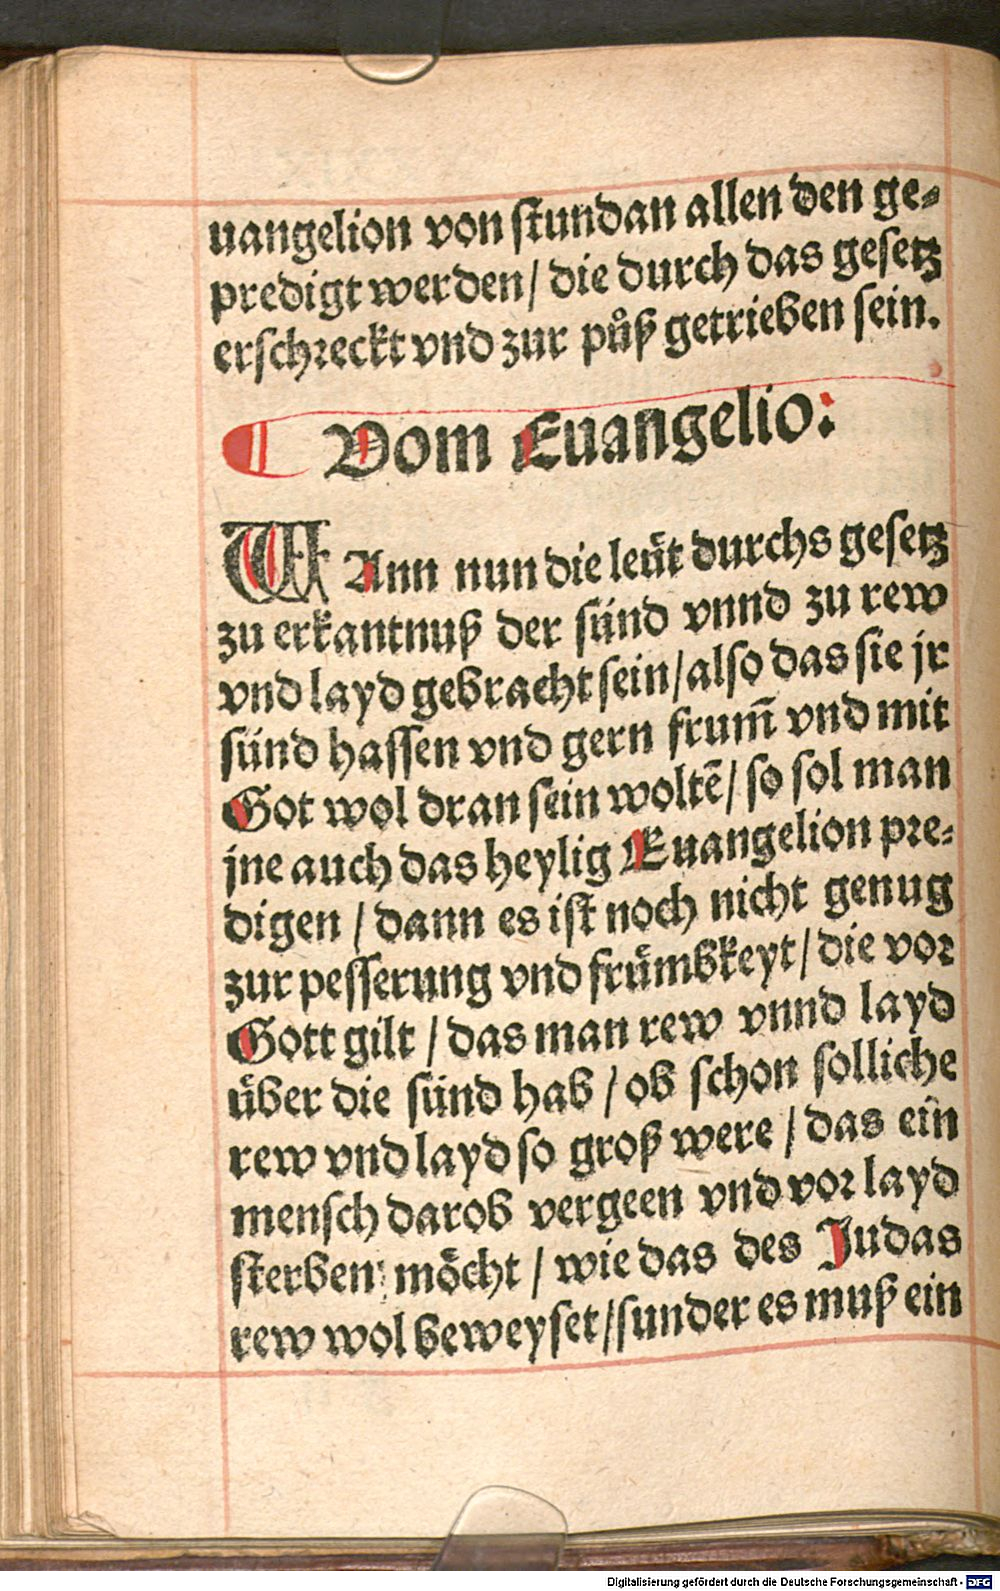 uangelion von ſtundan allen den ge⸗
predigt werden/ die durch das geſetz
erſchreckt vnd zur půß getrieben ſein.
Vom Euangelio:
WAnn nun die leüt durchs geſetz
zu erkantnuß der ſünd vnnd zu rew
vnd layd gebracht ſein/ alſo das ſie jr
ſünd haſſen vnd gern frum̄ vnd mit
Got wol dran ſein woltē/ ſo ſol man
jne auch das heylig Euangelion pre⸗
digen / dann es iſt noch nicht genug
zur peſſerung vnd frümbkeyt/ die vor
Gott gilt / das man rew vnnd layd
über die ſünd hab / ob ſchon ſolliche
rew vnd layd ſo groß were / das ein
menſch darob vergeen vnd vor layd
ſterben möcht / wie das des Judas
rew wol beweyſet/ ſunder es muß ein
Digitalisierung gefördert durch die Deutsche Forschungsgemeinschaft - DFG